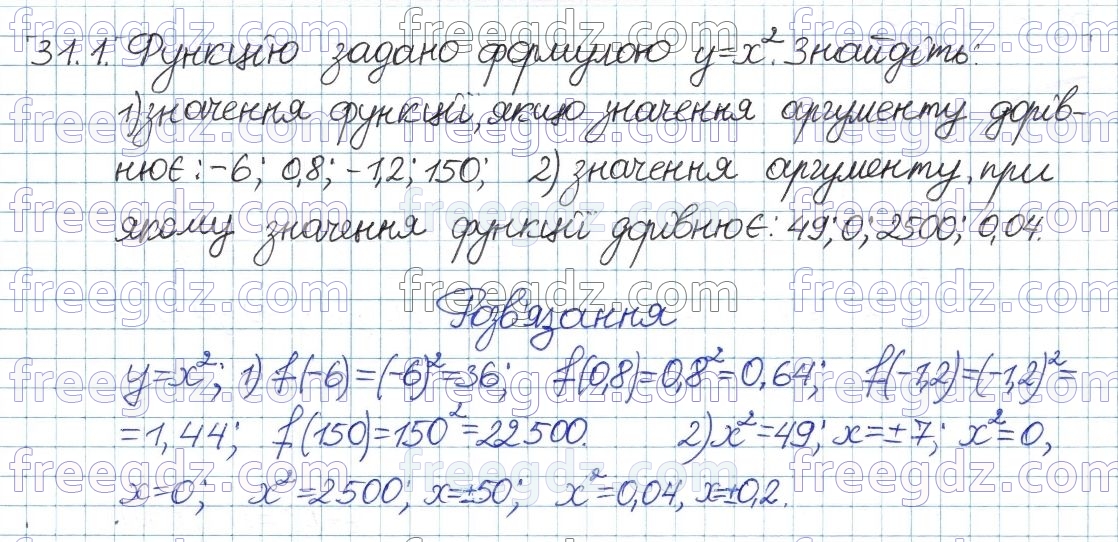 31.1. Функцію задано формулою y=x². Знайдіть:
1) значення функції, якщо значення аргументу дорів-
нює: -6; 0,8; -1,2; 150; 2) значення аргументу, при
якому значення функції дорівнює: 49; 0; 2500; 0,04.
Розв'язання
y=x²; 1) f(-6)=(-6)²=36; f(0,8)=0,8²=0,64; f(-1,2)=(-1,2)²=
=1,44; f(150)=150²=22500. 2) x²=49; x=±7; x²=0,
x=0; x²=2500; x=±50; x²=0,04, x=±0,2.